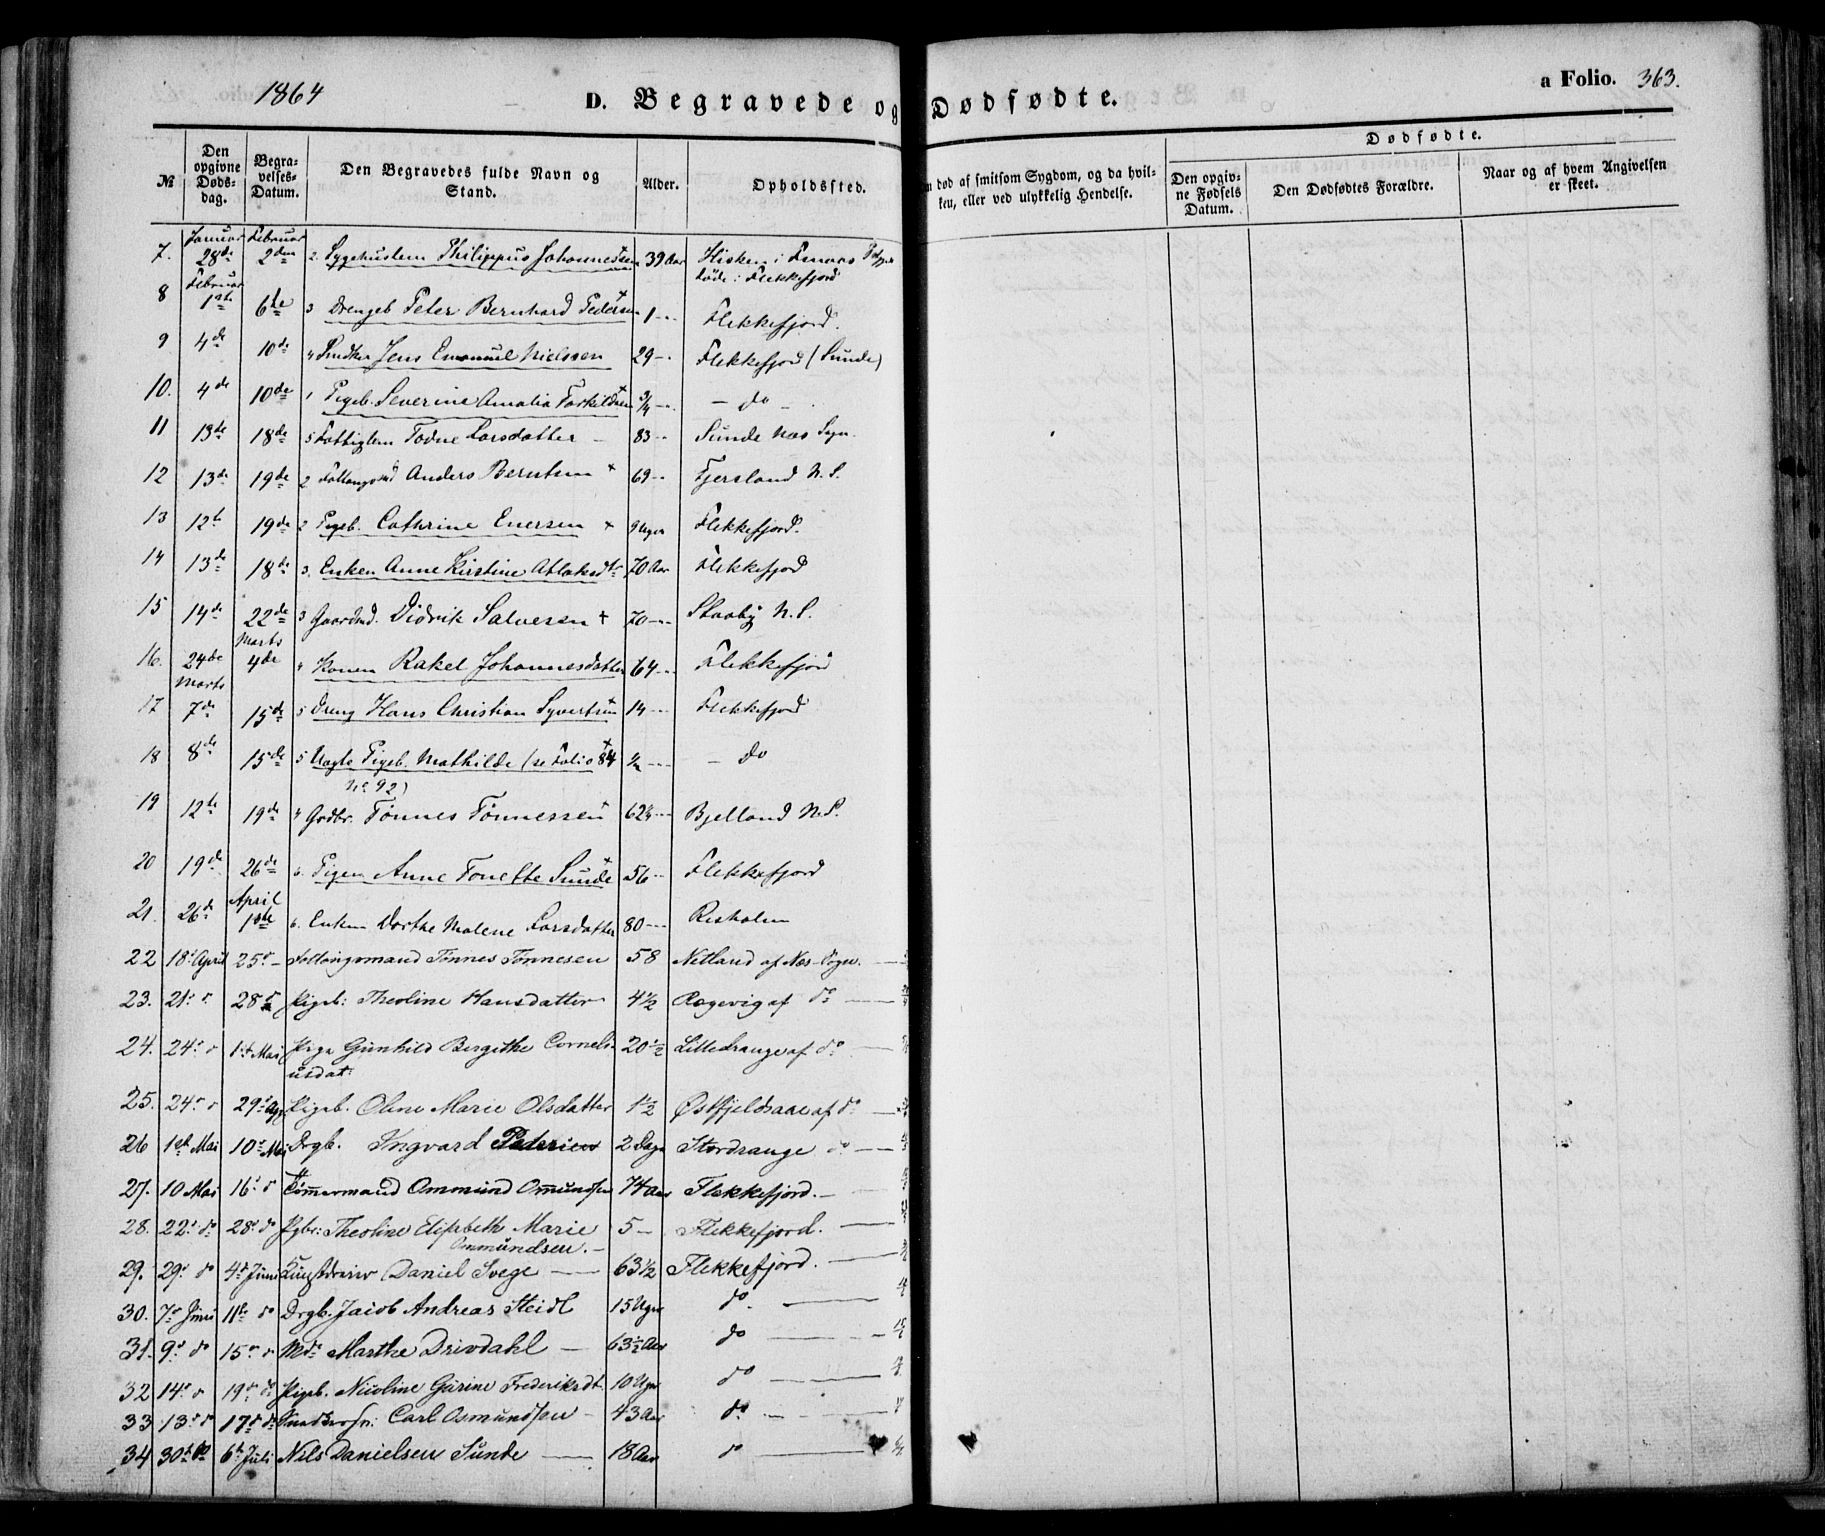 1864
D. Begravede og Dødfødte.
a Folio. 363.
№ | Den opgivne Døds-dag. | Begra-velses-Datum. | Den Begravedes fulde Navn og Stand. | Alder. | Opholdssted. | n død af smitsom Sygdom, og da hvil-ken, eller ved ulykkelig Hendelse. | Dødfødte. | Den opgiv-ne Fødsels Datum. | Den Dødfødtes Forældre. | Naar og af hvem Angivelsen er skeet.
Januar Februar
7. 28de 2den 2. Sygehuslem Philippus Johannessen 39 Aar Hisken i Fenars
døde i Flekkefjord
Februar
8 1ste 6te 3 Drengeb Peter Bernhard Pedersen 1 Flekkefjord.
9 4de 10de " Jens Emanuel Nielssen 29 Flekkefjord (Sunde)
10. 4de 10de 1 Pigeb. Severine Amalia Torkildsen 3/4 do
11 13de 18de 5 Fattiglem Todne Larsdatter 83 Sunde Næs Sogn.
12 13de 19de 2 Anders Berntsen + 69 Fjersland N. S.
13 12te 19de 2 Pigeb. Cathrine Enersen + 9 Uger Flekkefjord.
14 13de 18de 3. Enken Anne Kirstine Atlaksdtr 70 Aar Flekkefjord
15 14de 22de 3 Gaardmd. Didrik Salvesen + 70 Staaby N. S.
Marts
16. 24de 4de " Konen Rakel Johannesdatter 64 Flekkefjord
Marts
17 7de 15de 5 Dreng Hans Christian Syvertsen 14 Flekkefjord
18 8de 15de 5 Uægte Pigeb. Mathilde (se Folio 84 do
No 92)
19 12te 19de " Grdbr. Tønnes Tønnessen 62 Bjelland N. S.
20 19de 26de 6. Pigen Anne Tonette Sunde 56 Flekkefjord
April
21. 26de 1ste 6. Enken Dorthe Malene Larsdatter 80 Risholm
22 18 April 25 Føllaugsmand Tønnes Tønnesen 58 Netland af Næs Sogn.
23. 21 28 Pigeb: Theoline Hansdatter 4 1/2 Ragevig af do
24. 24 1st Mai Pige Gunhild Bergithe Corneli- 20 1/2 Litledrange af do
usdat:
25. 24 29 Apr Pigeb. Oline Marie Olsdatter 1 1/2 Østfjeldsaae af do
26 1st Mai 10 Mai Drgb. Ingvard Pedersen 2 Dage Stordrange do
27. 10 Mai 16 Tømmermand Ommund Ommundsen 74 Aar Flekkefjord.
28. 22 do 28 do Pgbr: Theoline Elisabeth Marie 5 Flekkefjord.
Ommundsen.
29. 29 do 4d Juni Daniel Svege 63 1/2 Flekkefjord.
30. 7 Juni 11te do Drgb. Jacob Andreas Steidl 15 Uger do
31. 9 do 15 Md. Marthe Drivdahl 63 1/2 Aar do
32 14 19 do Pigeb. Nicoline Gurine Frederiksdt. 10 Uger do
33 13 do 17 do Carl Osmundsen 43 Aar do
34 30te do 6te Juli Nils Danielsen Sunde 18 Aar do